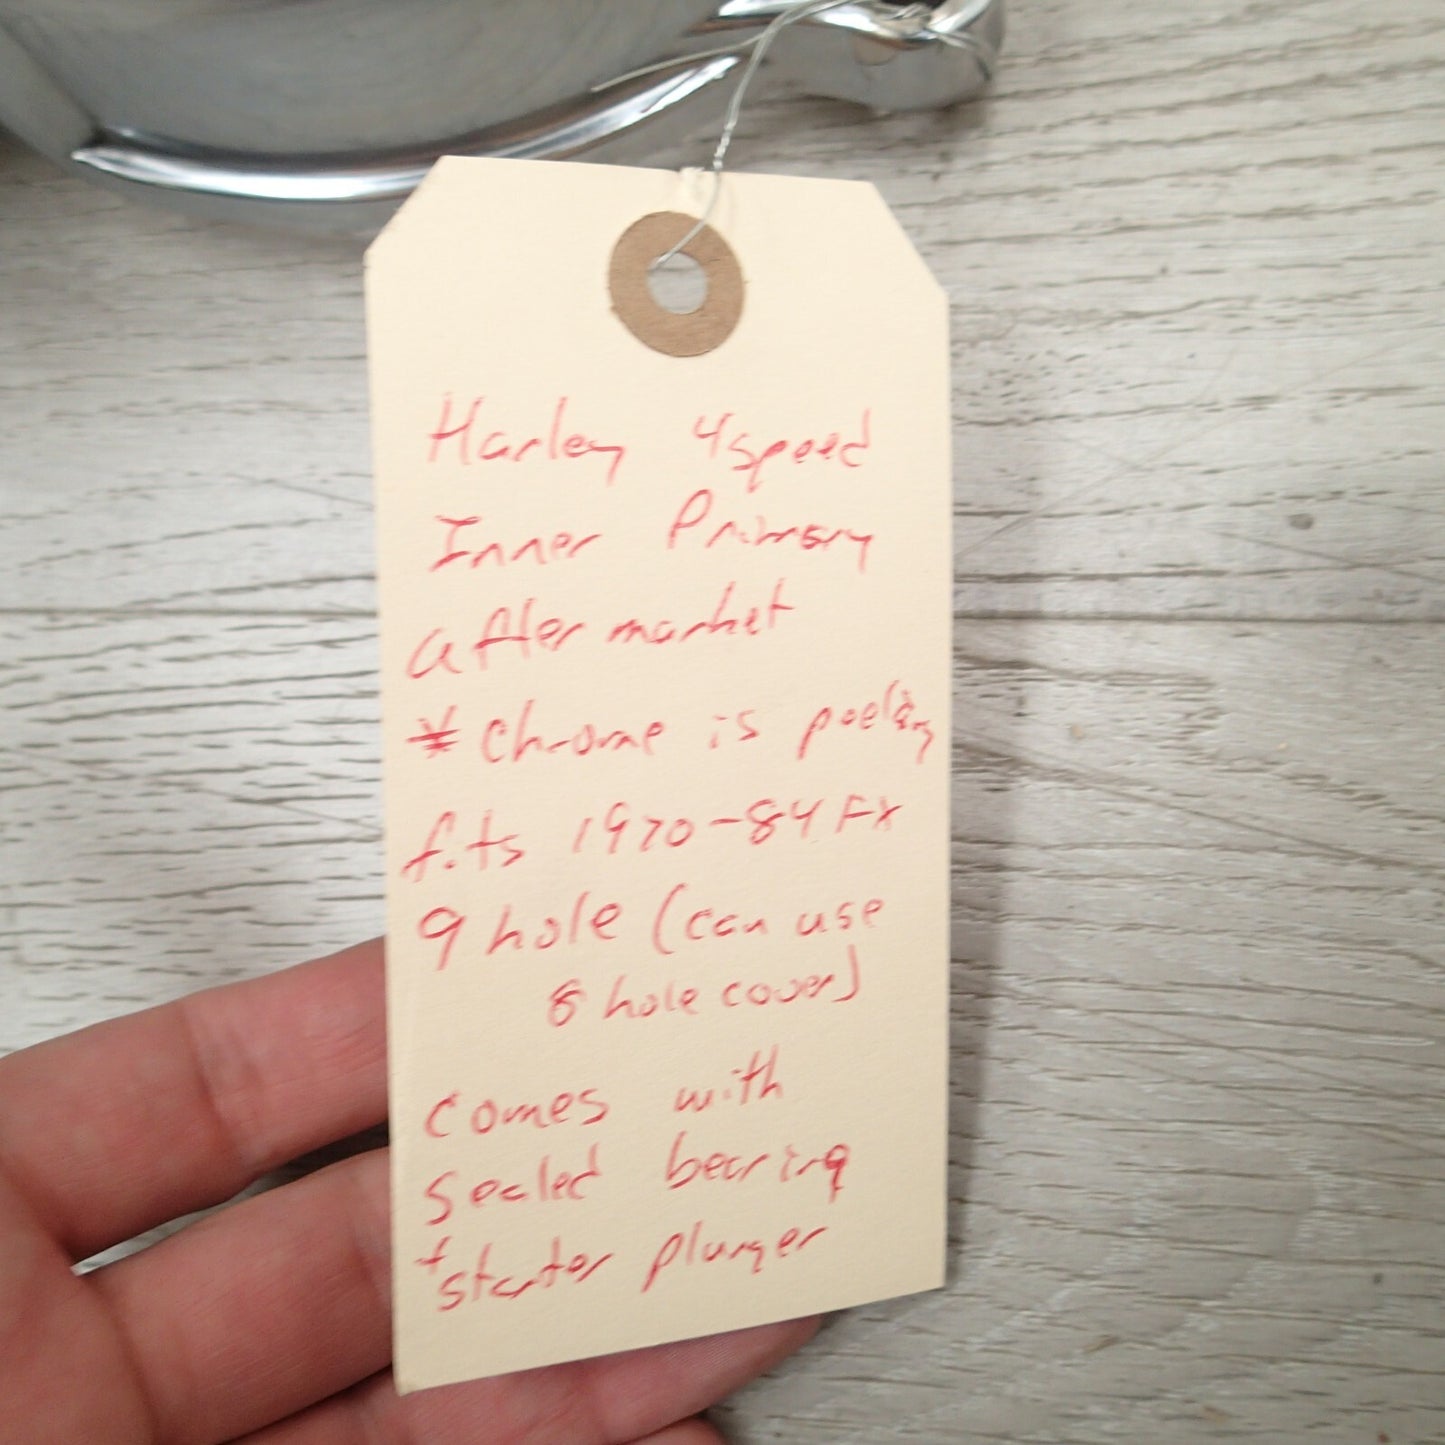 Harley 4speed
Inner Primary
aftermarket
* Chrome is peeling
fits 1970-84 FX
9 hole (can use
8 hole cover)
comes with
Sealed bearing
+ starter plunger